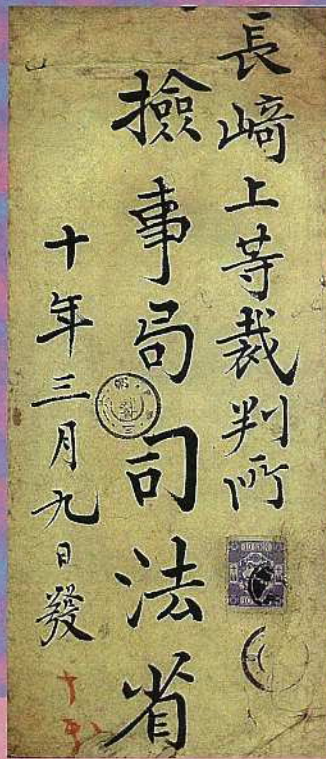 長﨑上等裁判所
撿事局司法省
十年三月九日發